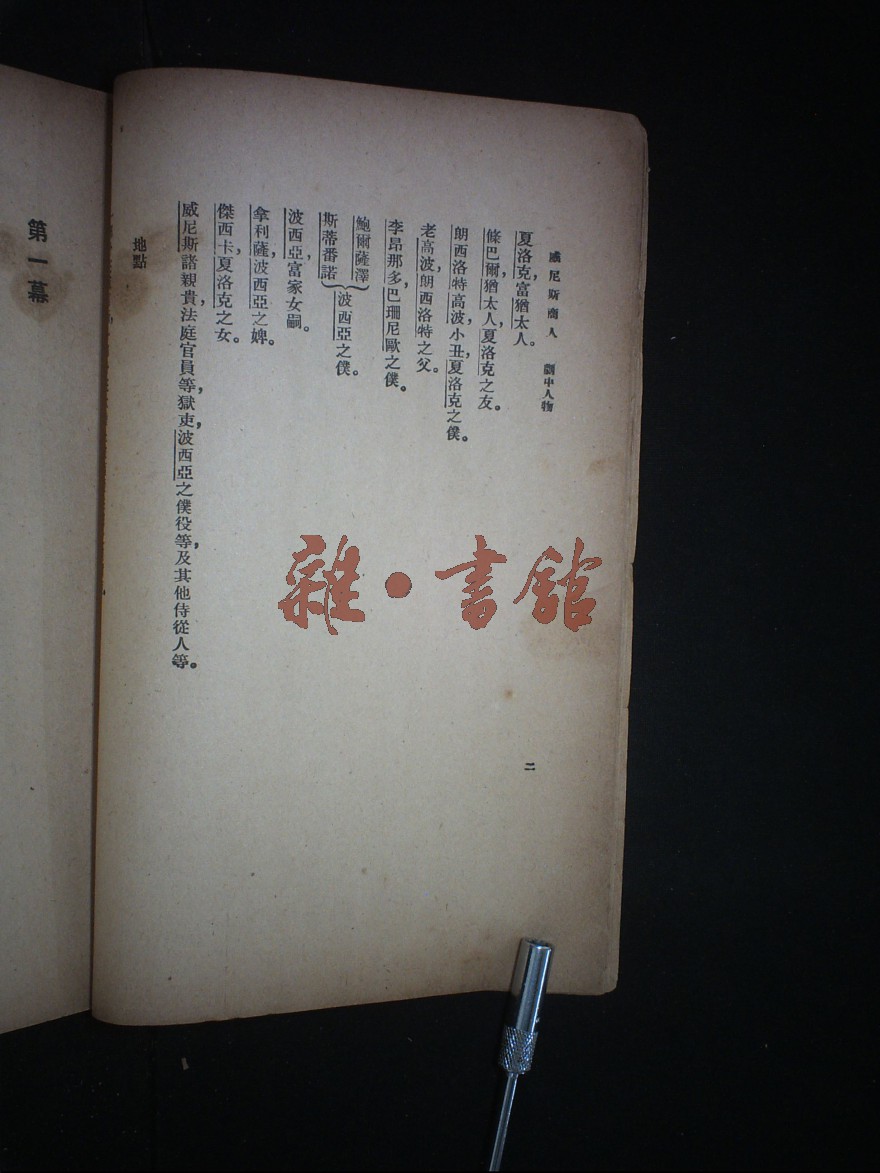 威尼斯商人　劇中人物
夏洛克，富猶太人。
條巴爾，猶太人，夏洛克之友。
朗西洛特高波，小丑，夏洛克之僕。
老高波，朗西洛特之父。
李昂那多，巴珊尼歐之僕。
鮑爾薩澤
斯蒂番諾
波西亞之僕。
波西亞，富家女嗣。
拿利薩，波西亞之婢。
傑西卡，夏洛克之女。
威尼斯諸親貴，法庭官員等，獄吏，波西亞之僕役等，及其他侍從人等。
地點
二
第一幕
雜·書館